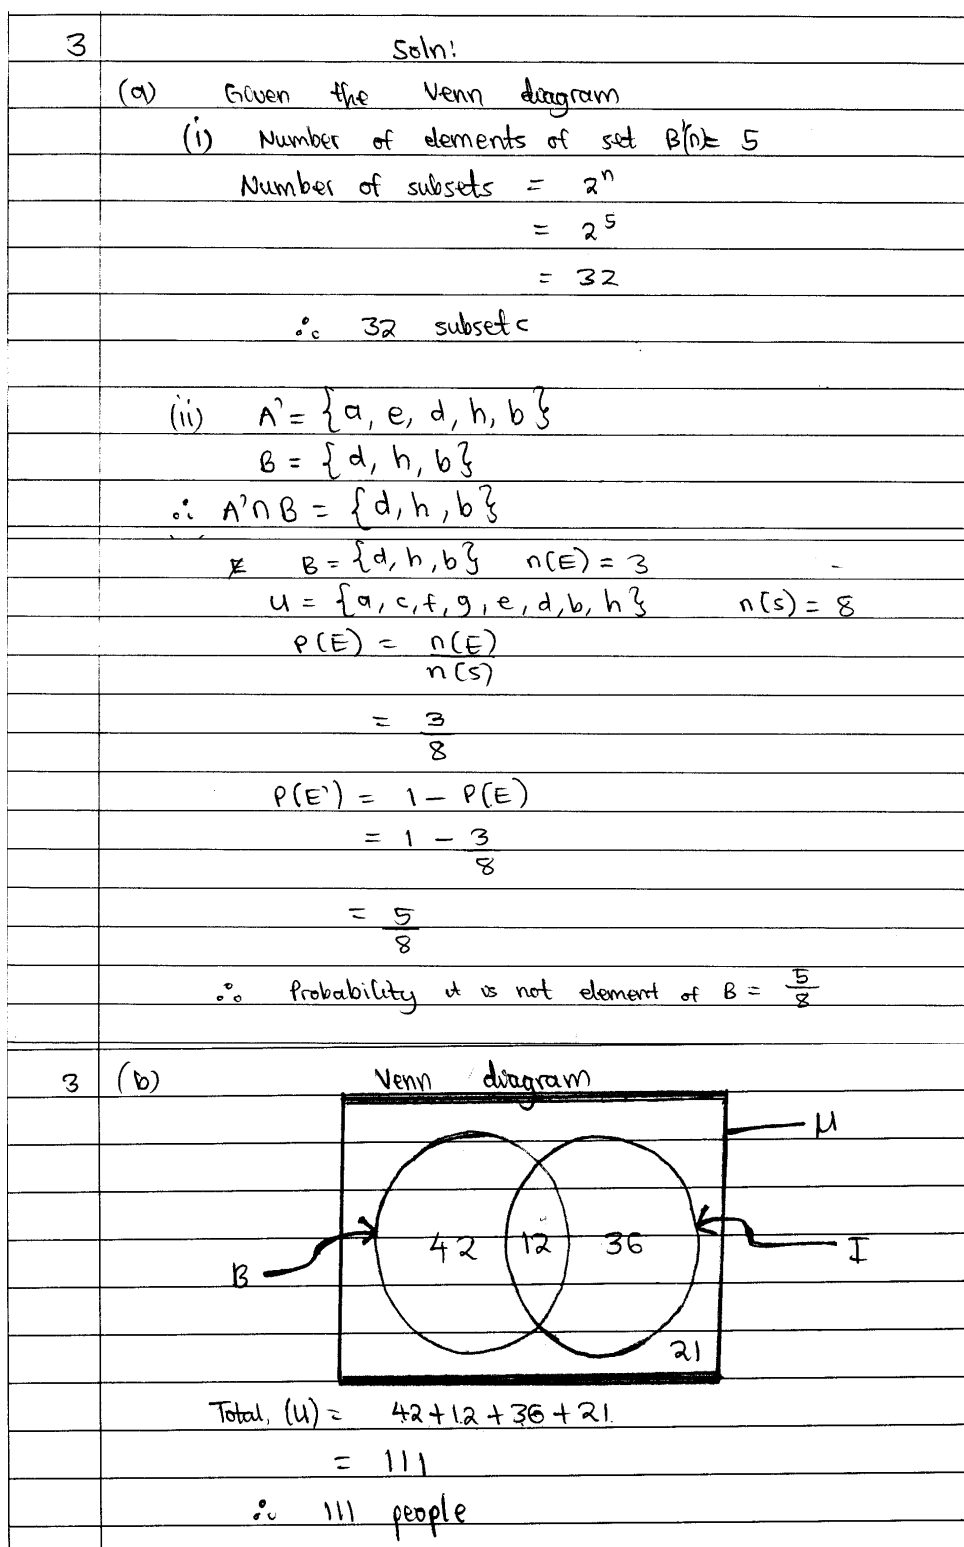 3 Soln:
(a) Given the Venn diagram
(i) Number of elements of set B'(n)= 5
Number of subsets = 2ⁿ
= 2⁵
= 32
∴ 32 subsets
(ii) A' = {a, e, d, h, b}
B = {d, h, b}
∴ A'∩B = {d, h, b}
B = {d, h, b} n(E) = 3
U = {a, c, f, g, e, d, b, h} n(S) = 8
P(E) = n(E)
n(S)
= 3
8
P(E') = 1 - P(E)
= 1 - 3
8
= 5
8
∴ Probability it is not element of B = 5/8
3 (b) Venn diagram
μ
42 12 36
B I
21
Total, (U) = 42 + 12 + 36 + 21
= 111
∴ 111 people